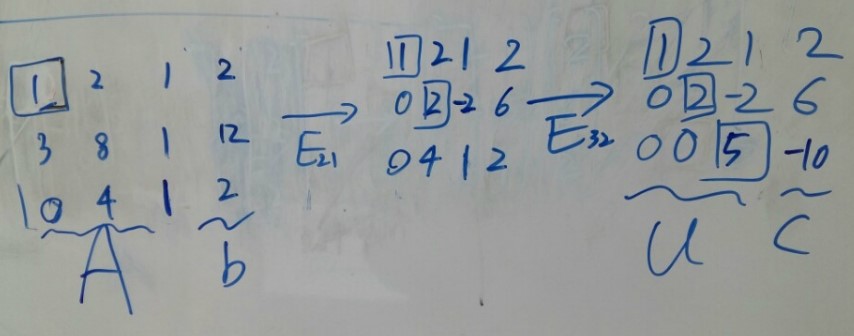 1 2 1 2
3 8 1 12
0 4 1 2
A b
E21
1 2 1 2
0 2 -2 6
0 4 1 2
E32
1 2 1 2
0 2 -2 6
0 0 5 -10
U C